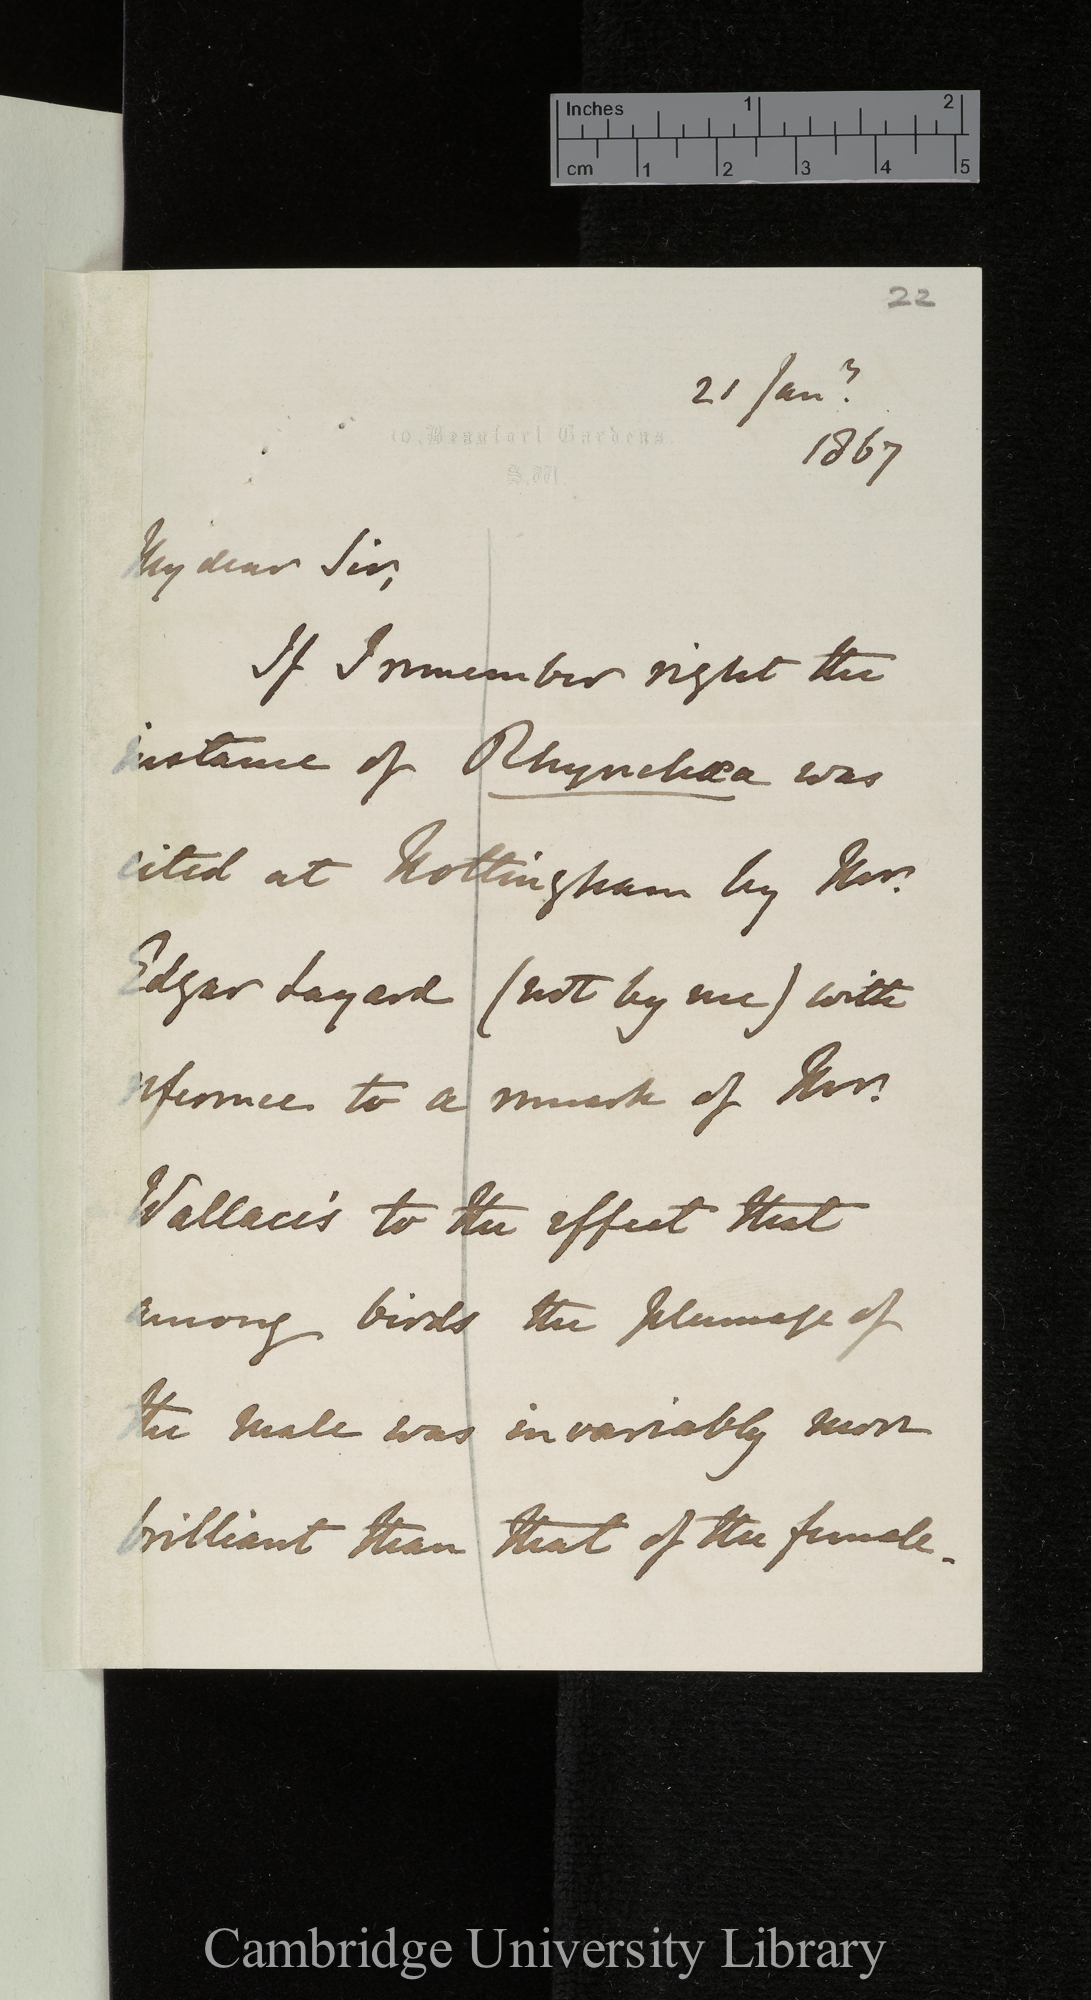 Inches 1 2
cm 1 2 3 4 5
22
21 Jany.
1867
10, Beaufort Gardens.
S.W.
My dear Sir,
If I remember right the
instance of Rhynchæa was
cited at Nottingham by Mr.
Edgar Layard (not by me) with
reference to a remark of Mr.
Wallace's to the effect that
among birds the plumage of
the male was invariably more
brilliant than that of the female.
Cambridge University Library